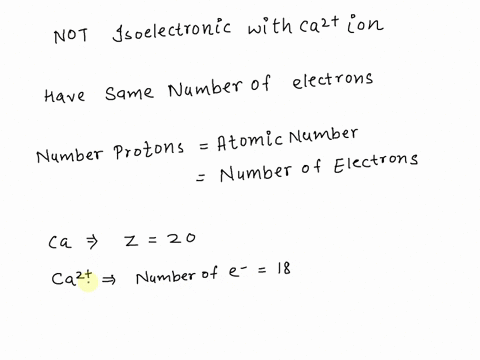 NOT Isoelectronic with Ca²⁺ ion
Have Same Number of electrons
Number Protons = Atomic Number
= Number of Electrons
Ca ⇒ Z = 20
Ca²⁺ ⇒ Number of e⁻ = 18